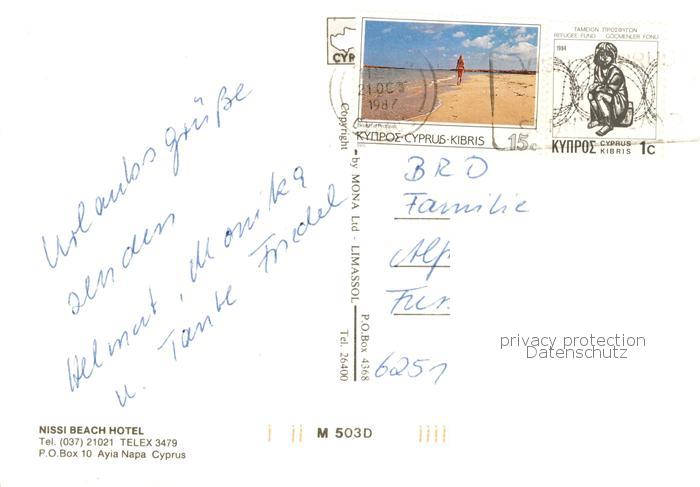 Urlaubsgrüße
senden
Helmut, Monika
u. Tante Friedel
NISSI BEACH HOTEL
Tel. (037) 21021 TELEX 3479
P.O.Box 10 Ayia Napa Cyprus
M 503D
Copyright by MONA Ltd - LIMASSOL
P.O.Box 4368
Tel. 26400
CYP
21 OC
1987
ΚΥΠΡΟΣ·CYPRUS·KIBRIS 15c
ΤΑΜΕΙΟΝ ΠΡΟΣΦΥΓΩΝ
REFUGEE FUND GÖÇMENLER FONU
1984
ΚΥΠΡΟΣ CYPRUS KIBRIS 1c
BRD
Familie
Alf
Fur
6251
privacy protection
Datenschutz